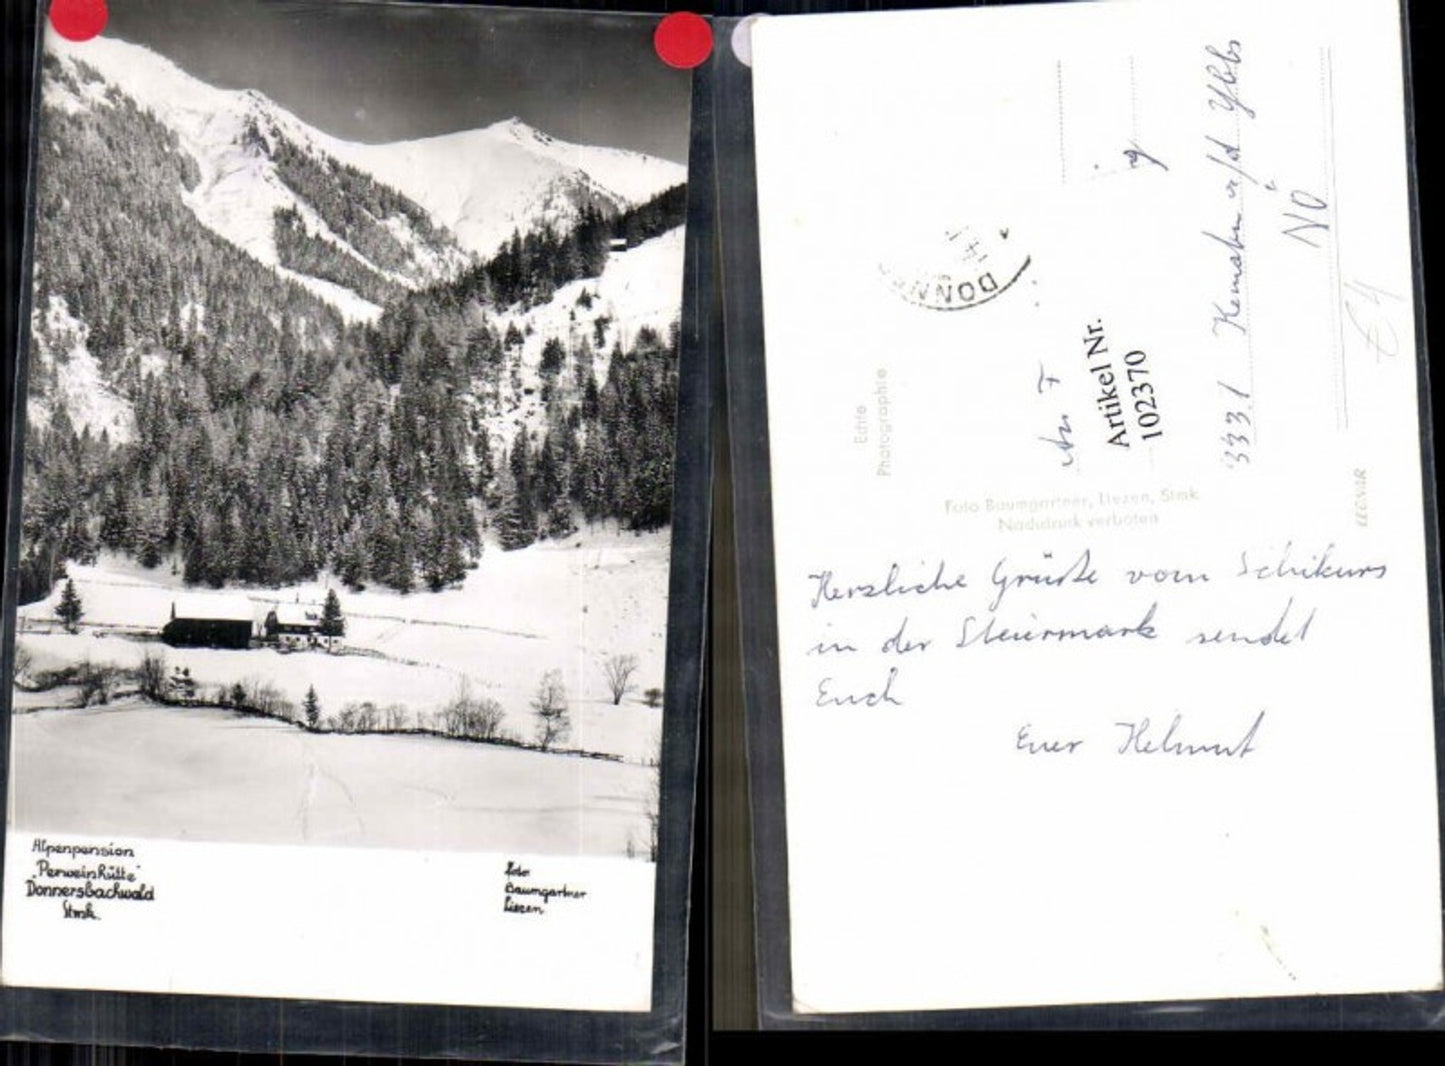 Alpenpension
"Perweinhütte"
Donnersbachwald
Stmk.
Foto
Baumgartner
Liezen
Echte
Photographie
DONN
An F
Artikel Nr.
102370
3331 Kematen a/d Ybbs
NÖ
€4
Foto Baumgartner, Liezen, Stmk
Nachdruck verboten
Herzliche Grüße vom Schikurs
in der Steiermark sendet
Euch
Euer Helmut